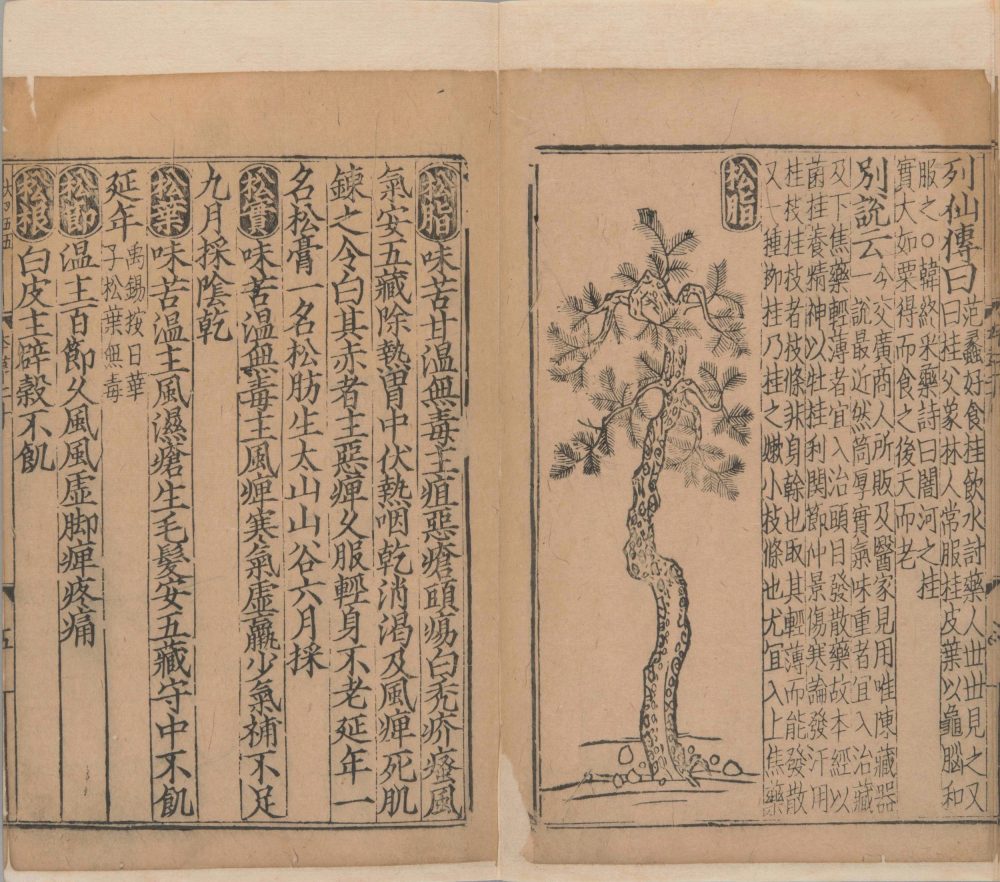 列仙傳曰
范蠡好食桂飲水討藥人世世見之又
曰桂父象林人常服桂皮葉以龜腦和
服之○韓終采藥詩曰闇河之桂
實大如栗得而食之後天而老
別說云
今交廣商人所販及醫家見用唯陳藏器
一說最近然筒厚實氣味重者宜入治藏
及下焦藥輕薄者宜入治頭目發散藥故本經以
菌桂養精神以牡桂利関節仲景傷寒論發汗用
桂枝桂枝者枝條非身幹也取其輕薄而能發散
又一種柳桂乃桂之嫩小枝條也尤宜入上焦藥
松脂
松脂 味苦甘溫無毒主疽惡瘡頭瘍白禿疥瘙風
氣安五藏除熱胃中伏熱咽乾消渴及風痺死肌
鍊之令白其赤者主惡痺久服輕身不老延年一
名松膏一名松肪生太山山谷六月採
松實 味苦溫無毒主風痺寒氣虛羸少氣補不足
九月採陰乾
松葉 味苦溫主風濕瘡生毛髮安五藏守中不飢
延年
禹錫按日華
子松葉無毒
松節 溫主百節久風風虛脚痺疼痛
松根 白皮主辟穀不飢